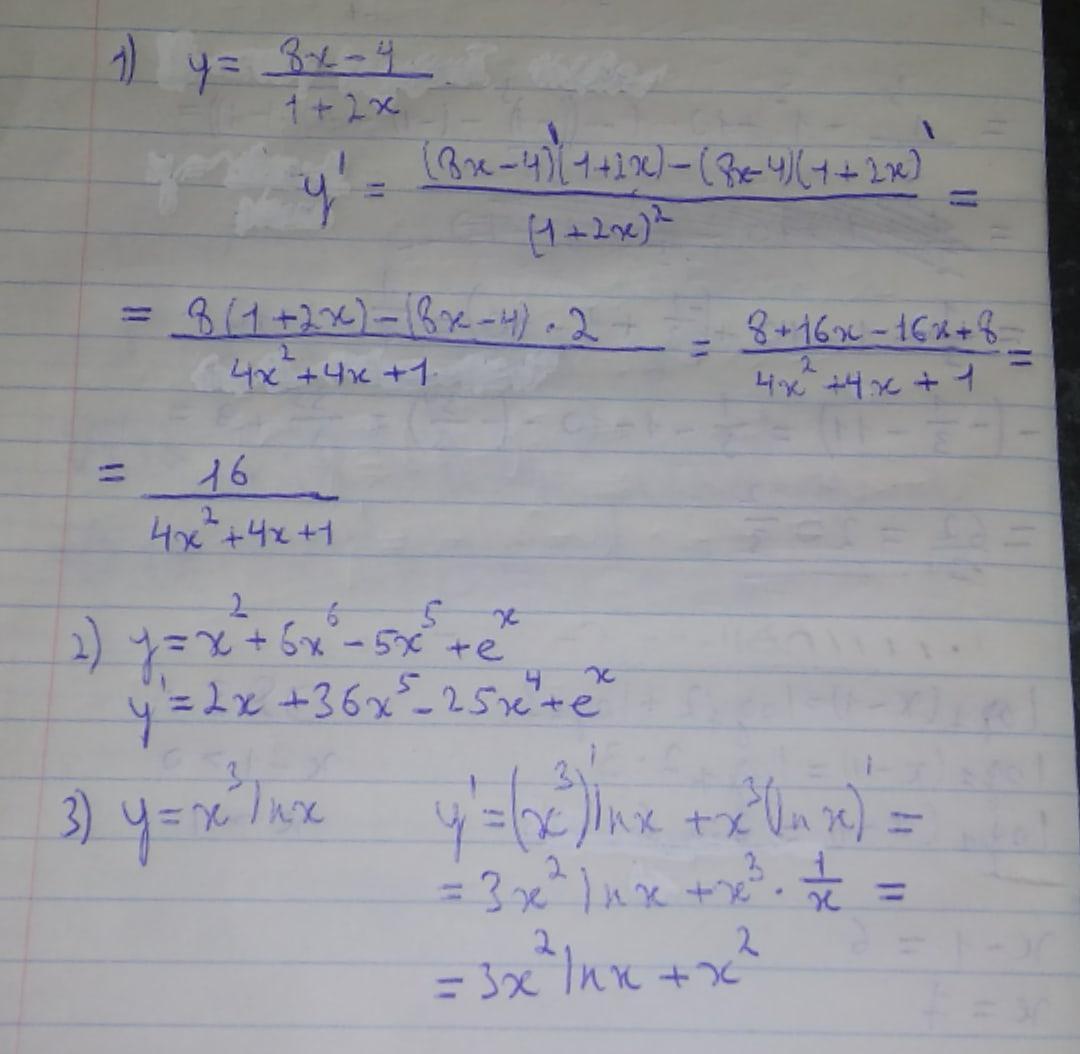 1) y = (8x-4)/(1+2x)
y' = ((8x-4)'(1+2x)-(8x-4)(1+2x)')/(1+2x)² =
= (8(1+2x)-(8x-4)·2)/(4x²+4x+1) = (8+16x-16x+8)/(4x²+4x+1) =
= 16/(4x²+4x+1)
2) y = x²+6x⁶-5x⁵+eˣ
y' = 2x+36x⁵-25x⁴+eˣ
3) y = x³lnx y' = (x³)'lnx+x³(lnx)' =
= 3x²lnx+x³·1/x =
= 3x²lnx+x²